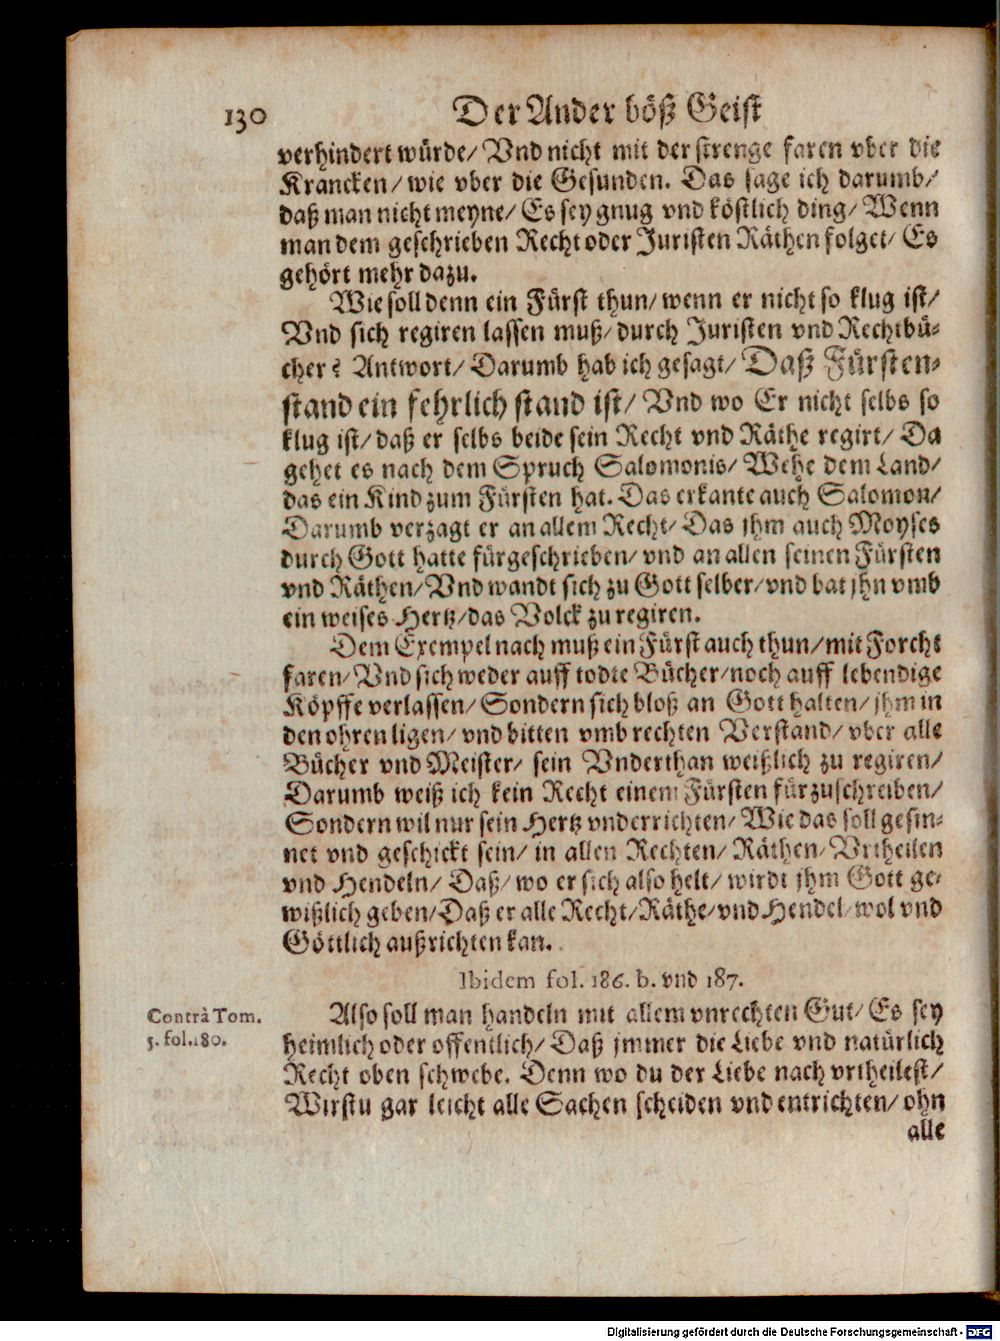 130 Der Ander böß Geist
verhindert würde/ Vnd nicht mit der strenge faren vber die
Krancken/ wie vber die Gesunden. Das sage ich darumb/
daß man nicht meyne/ Es sey gnug vnd köstlich ding/ Wenn
man dem geschrieben Recht oder Juristen Räthen folget/ Es
gehört mehr dazu.
Wie soll denn ein Fürst thun/ wenn er nicht so klug ist/
Vnd sich regiren lassen muß/ durch Juristen vnd Rechtbü-
cher? Antwort/ Darumb hab ich gesagt/ Daß Fürsten-
stand ein fehrlich stand ist/ Vnd wo Er nicht selbs so
klug ist/ daß er selbs beide sein Recht vnd Räthe regirt/ Da
gehet es nach dem Spruch Salomonis/ Wehe dem Land/
das ein Kind zum Fürsten hat. Das erkante auch Salomon/
Darumb verzagt er an allem Recht/ Das jhm auch Moyses
durch Gott hatte fürgeschrieben/ vnd an allen seinen Fürsten
vnd Räthen/ Vnd wandt sich zu Gott selber/ vnd bat jhn vmb
ein weises Hertz/ das Volck zu regiren.
Dem Exempel nach muß ein Fürst auch thun/ mit Forcht
faren/ Vnd sich weder auff todte Bücher/ noch auff lebendige
Köpffe verlassen/ Sondern sich bloß an Gott halten/ jhm in
den ohren ligen/ vnd bitten vmb rechten Verstand/ vber alle
Bücher vnd Meister/ sein Vnderthan weißlich zu regiren/
Darumb weiß ich kein Recht einem Fürsten fürzuschreiben/
Sondern wil nur sein Hertz vnderrichten/ Wie das soll gesin-
net vnd geschickt sein/ in allen Rechten/ Räthen/ Vrtheilen
vnd Hendeln/ Daß/ wo er sich also helt/ wirdt jhm Gott ge-
wißlich geben/ Daß er alle Recht/ Räthe/ vnd Hendel wol vnd
Göttlich außrichten kan.
Ibidem fol. 186. b. vnd 187.
Contrà Tom.
5. fol. 180.
Also soll man handeln mit allem vnrechten Gut/ Es sey
heimlich oder offentlich/ Daß jmmer die Liebe vnd natürlich
Recht oben schwebe. Denn wo du der Liebe nach vrtheilest/
Wirstu gar leicht alle Sachen scheiden vnd entrichten/ ohn
alle
Digitalisierung gefördert durch die Deutsche Forschungsgemeinschaft - DFG